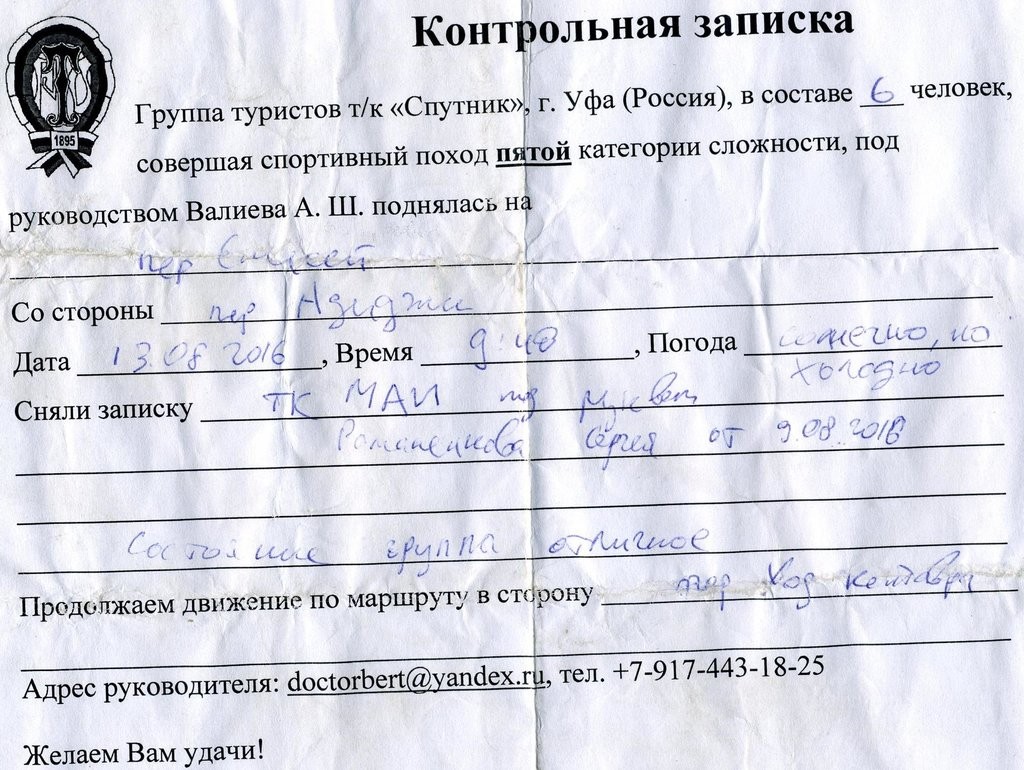 Контрольная записка
1895
Группа туристов т/к «Спутник», г. Уфа (Россия), в составе 6 человек,
совершая спортивный поход пятой категории сложности, под
руководством Валиева А. Ш. поднялась на
пер
Со стороны пер
Дата 13.08 2016, Время 9:40, Погода солнечно, но
холодно
Сняли записку ТК МАИ под
Романенкова Сергея от 9.08.2016
Состояние группа отличное
Продолжаем движение по маршруту в сторону пер Ход кентавра
Адрес руководителя: doctorbert@yandex.ru, тел. +7-917-443-18-25
Желаем Вам удачи!